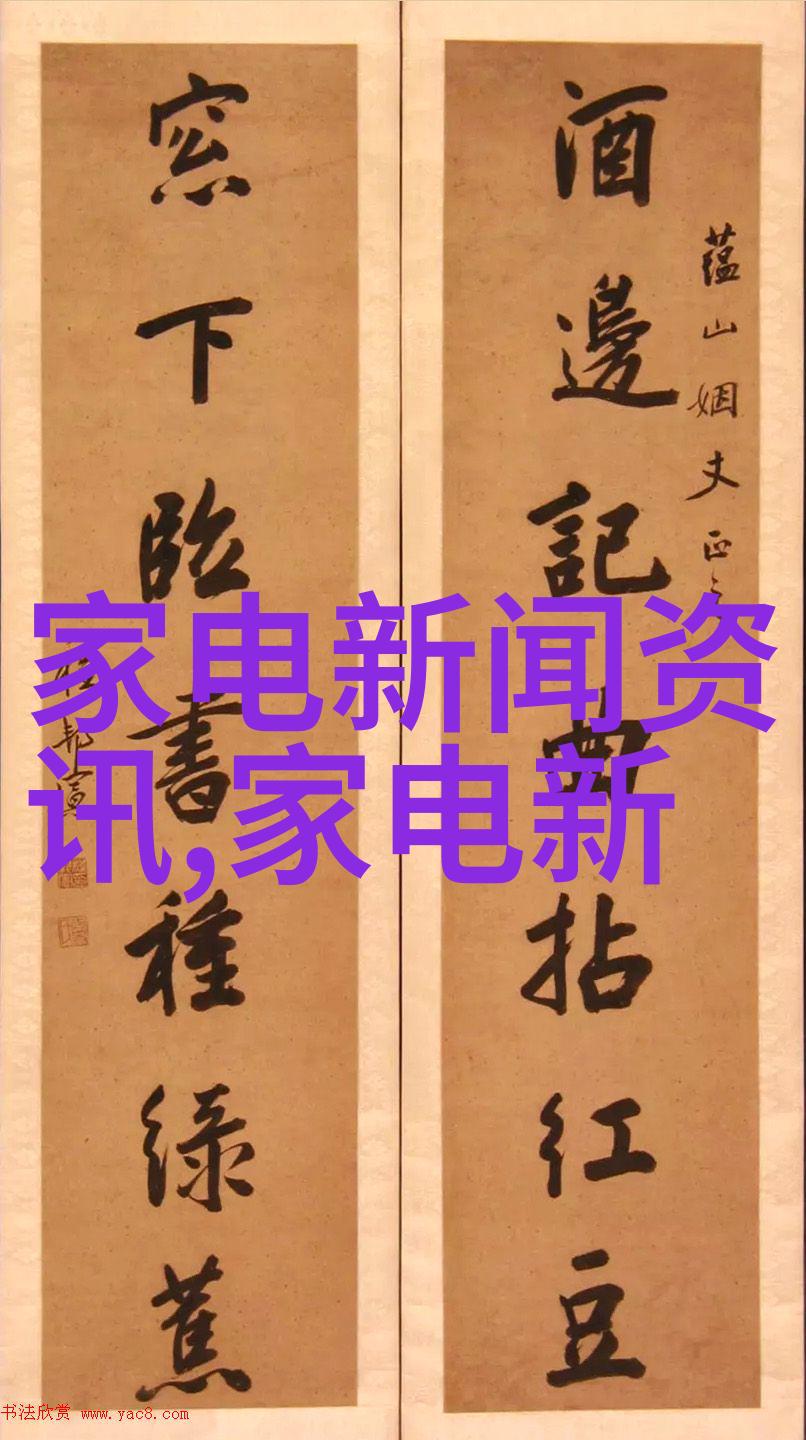 酒邊記曲拈紅豆
蘊山姻丈正之
窓下臨書種綠蕉
家电新闻资
讯,家电新
书法欣赏 www.yac8.com